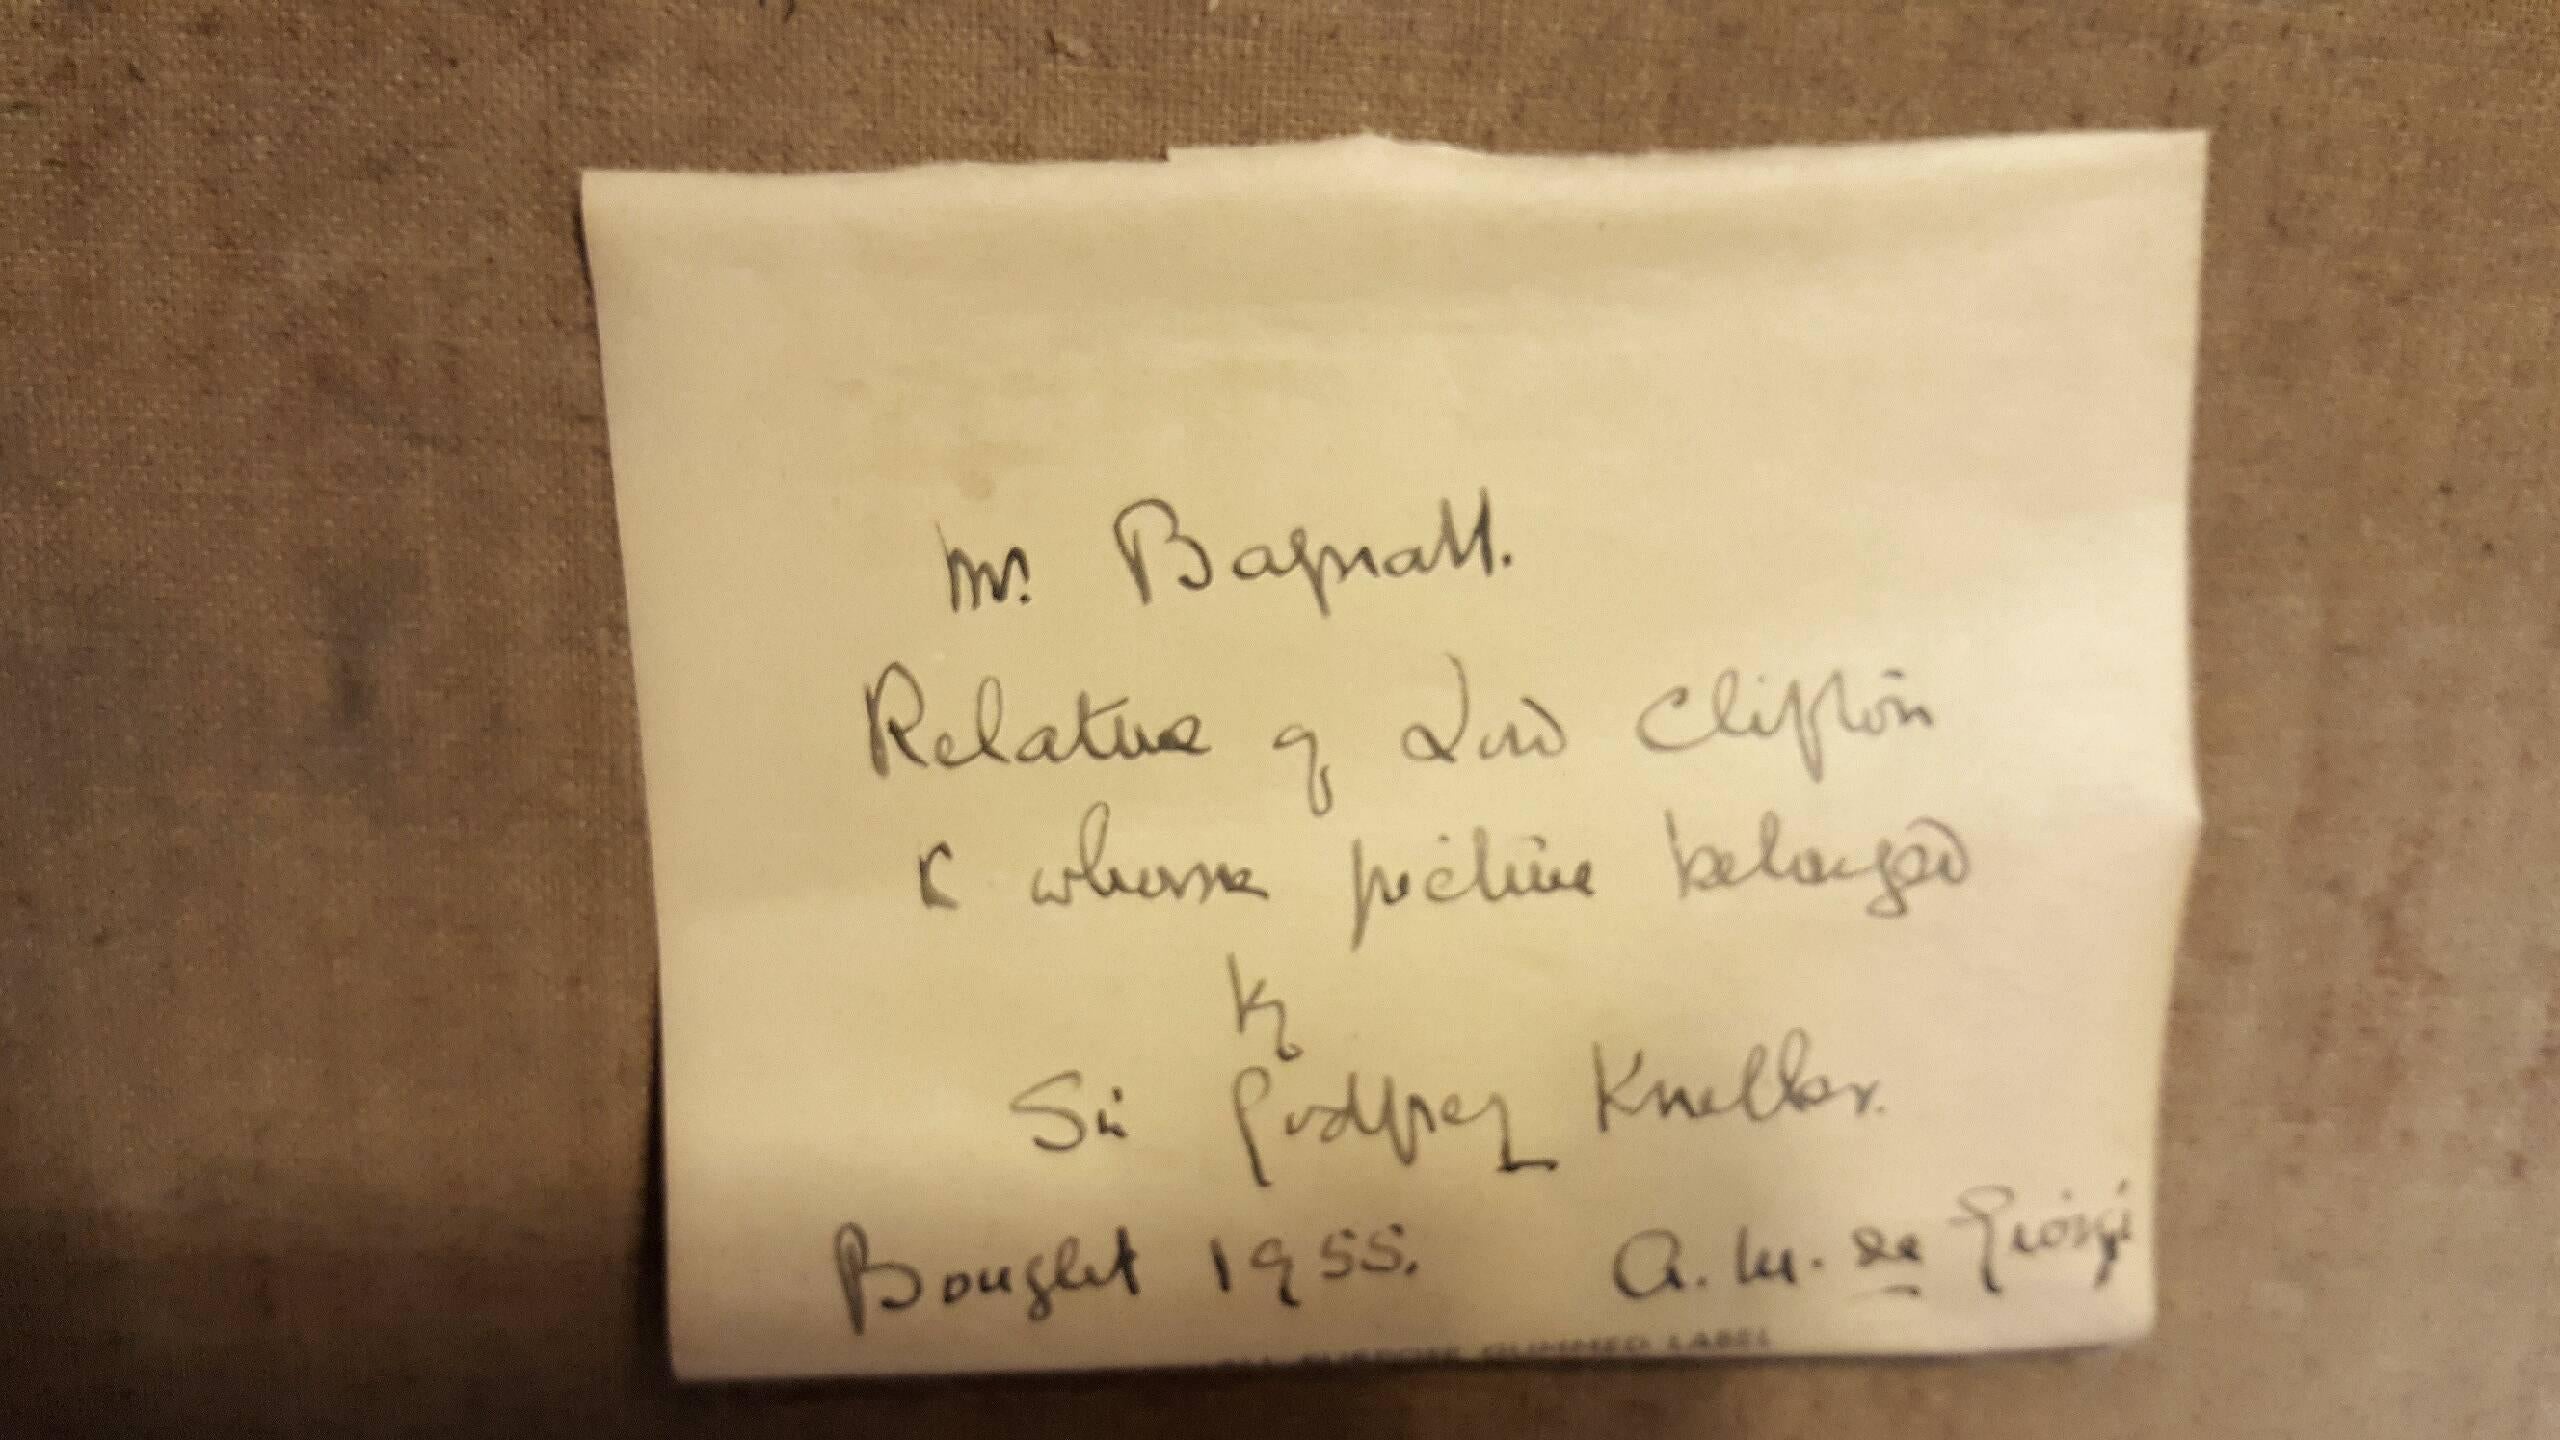 Mr. Bagnall.
Relative of Lord Clifton
& whose picture belonged
by
Sir Godfrey Kneller.
Bought 1955. A. M. de Giorgi
ALL PURPOSE GUMMED LABEL